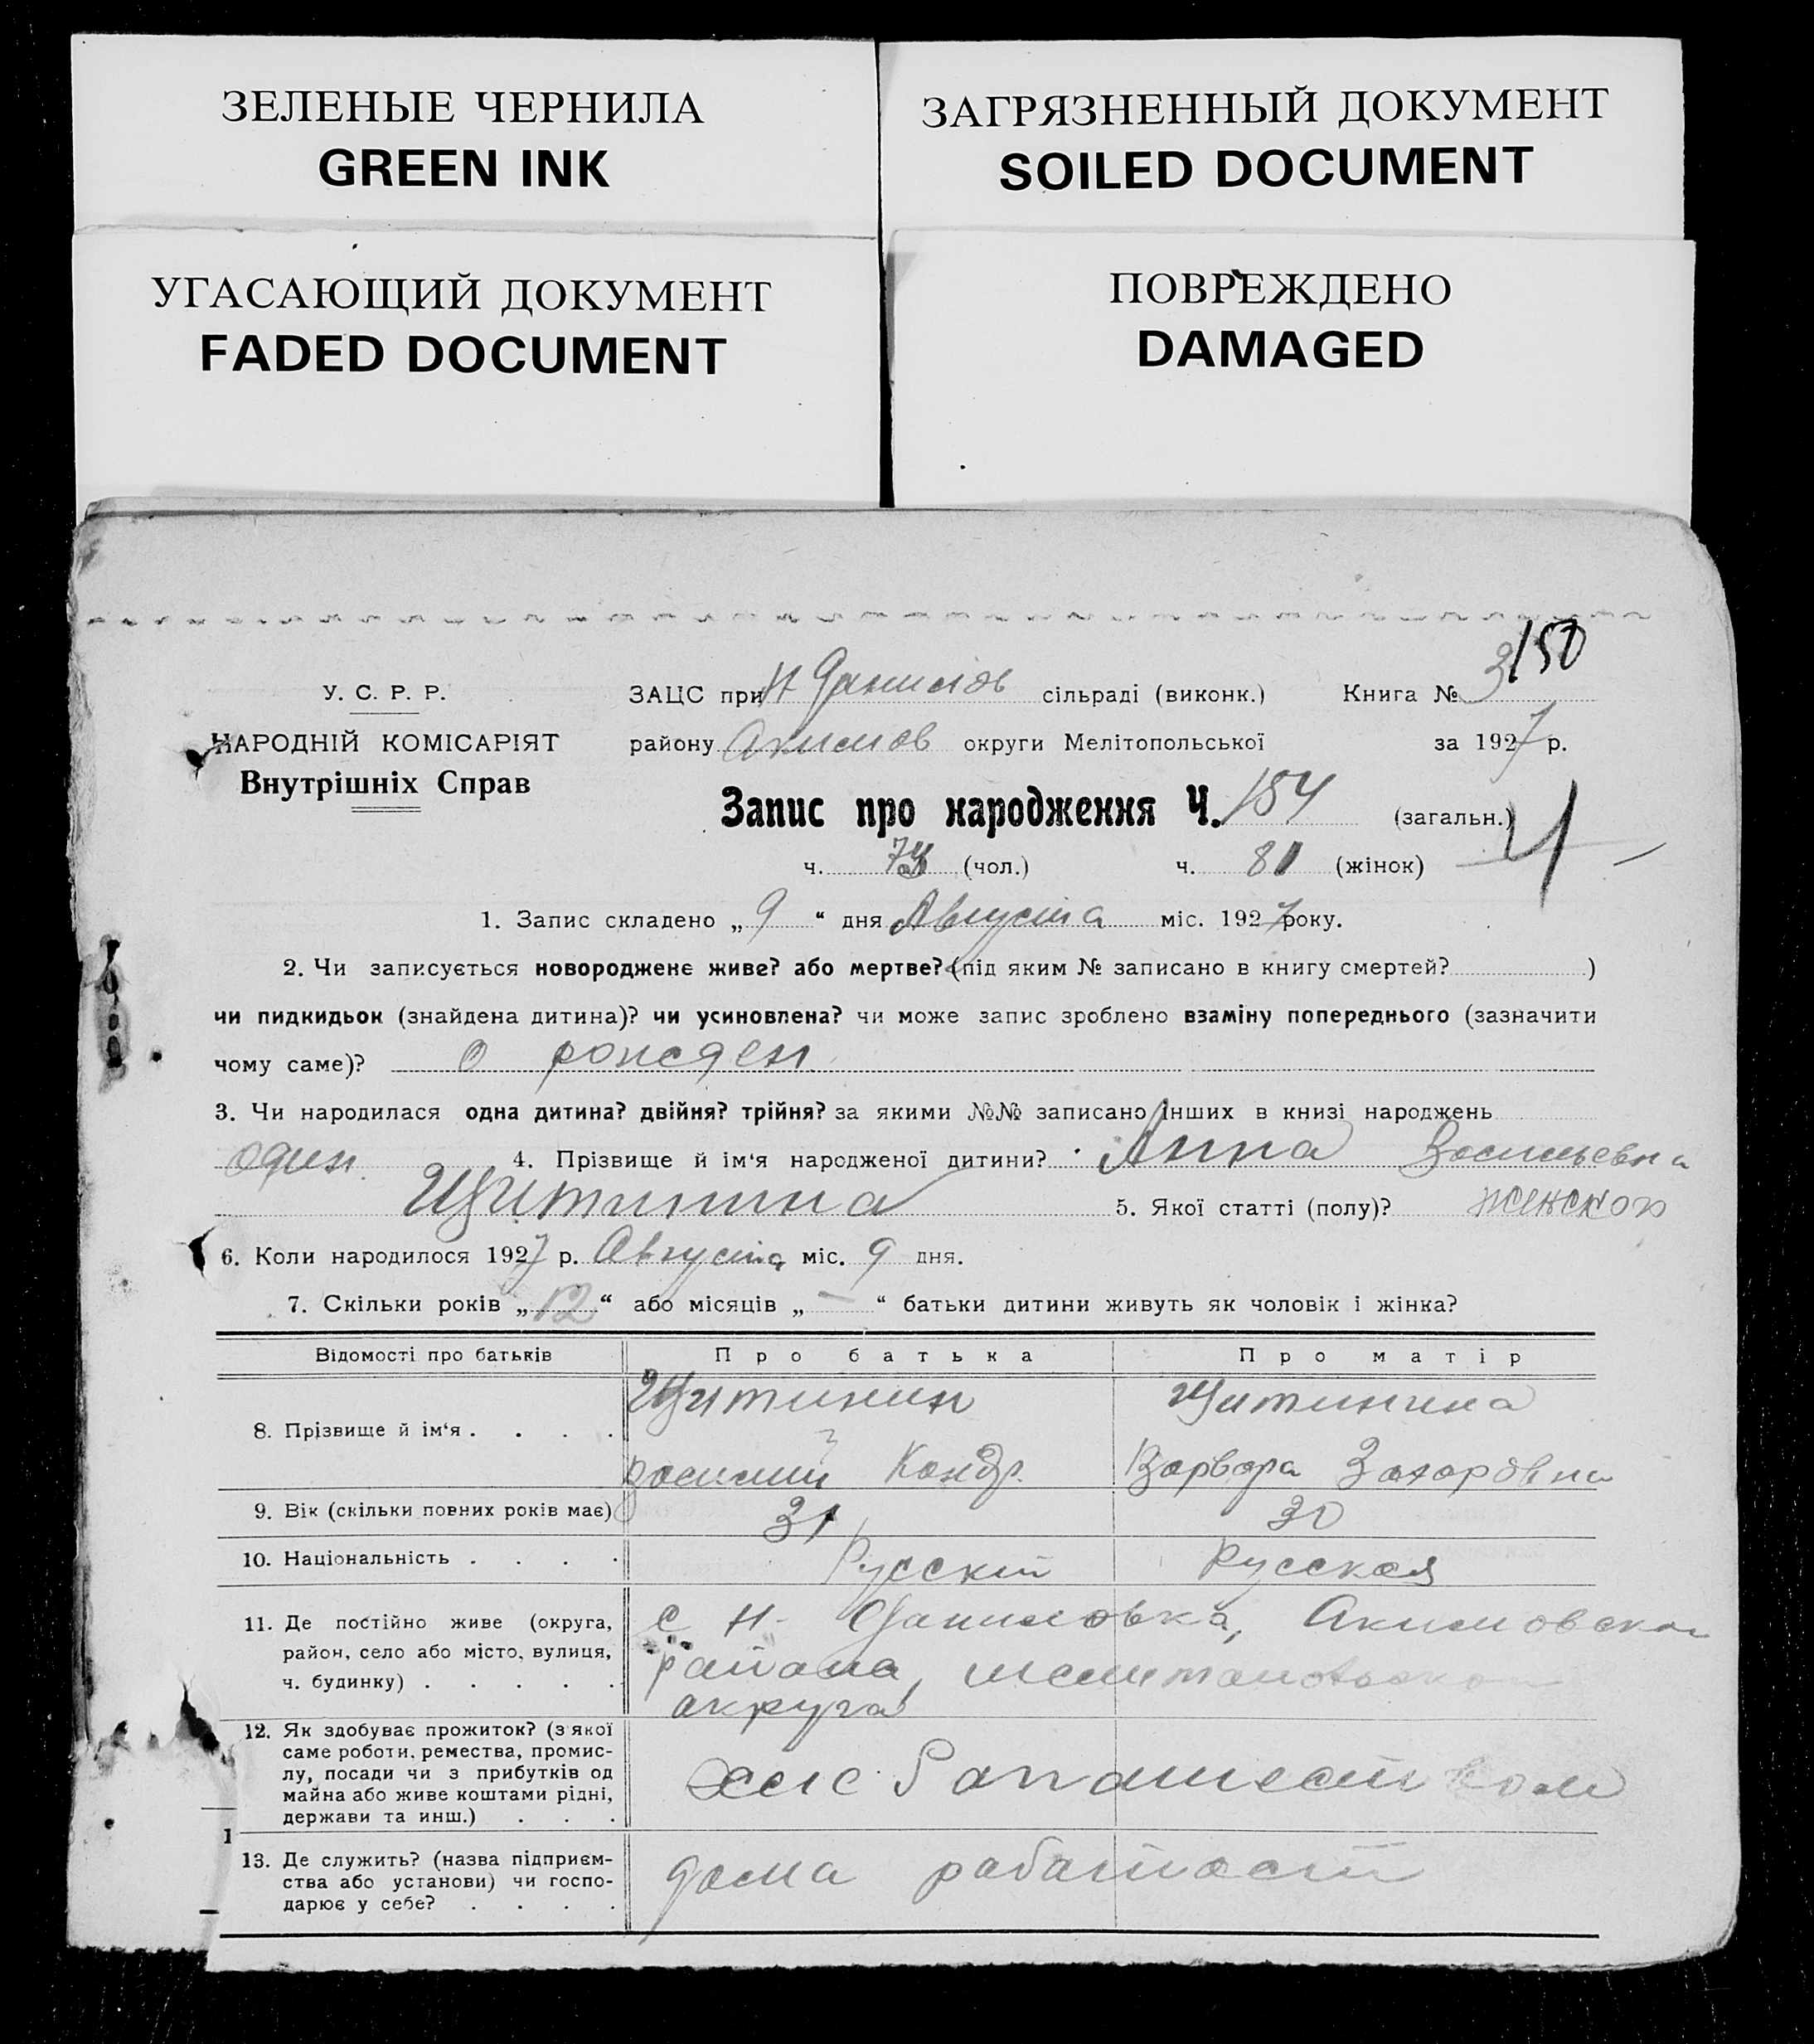 ЗЕЛЕНЫЕ ЧЕРНИЛА
GREEN INK
ЗАГРЯЗНЕННЫЙ ДОКУМЕНТ
SOILED DOCUMENT
УГАСАЮЩИЙ ДОКУМЕНТ
FADED DOCUMENT
ПОВРЕЖДЕНО
DAMAGED
150
У. С. Р. Р. ЗАЦС при Н Данилов сільраді (виконк.) Книга № 3
НАРОДНІЙ КОМІСАРІЯТ району Акимов округи Мелітопольської за 1927 р.
Внутрішніх Справ
Запис про народження Ч. 154 (загальн.)
ч. 73 (чол.) ч. 81 (жінок)
1. Запис складено „9“ дня Августа міс. 1927 року.
2. Чи записується новороджене живе? або мертве? (під яким № записано в книгу смертей? )
чи пидкидьок (знайдена дитина)? чи усиновлена? чи може запис зроблено взаміну попереднього (зазначити
чому саме)? о рожден
3. Чи народилася одна дитина? двійня? трійня? за якими №№ записано інших в книзі народжень
один 4. Прізвище й ім‘я народженої дитини? Анна Васильевна
Щитинина 5. Якої статті (полу)? женской
6. Коли народилося 1927 р. Августа міс. 9 дня.
7. Скільки років „12“ або місяців „—“ батьки дитини живуть як чоловік і жінка?
Відомості про батьків Про батька Про матір
8. Прізвище й ім‘я . . . . Щитинин Щитинина
Василий Кондр. Варвара Захаровна
9. Вік (скільки повних років має) 31 30
10. Національність . . . . Русский Русская
11. Де постійно живе (округа, с Н- Даниловка, Акимовског
район, село або місто, вулиця, района,
ч. будинку) . . . . . округа
12. Як здобуває прожиток? (з якої
саме роботи, ремества, промис-
лу, посади чи з прибутків од
майна або живе коштами рідні,
держави та инш.) . . .
13. Де служить? (назва підприєм- дома
ства або установи) чи госпо-
дарює у себе? . . . .